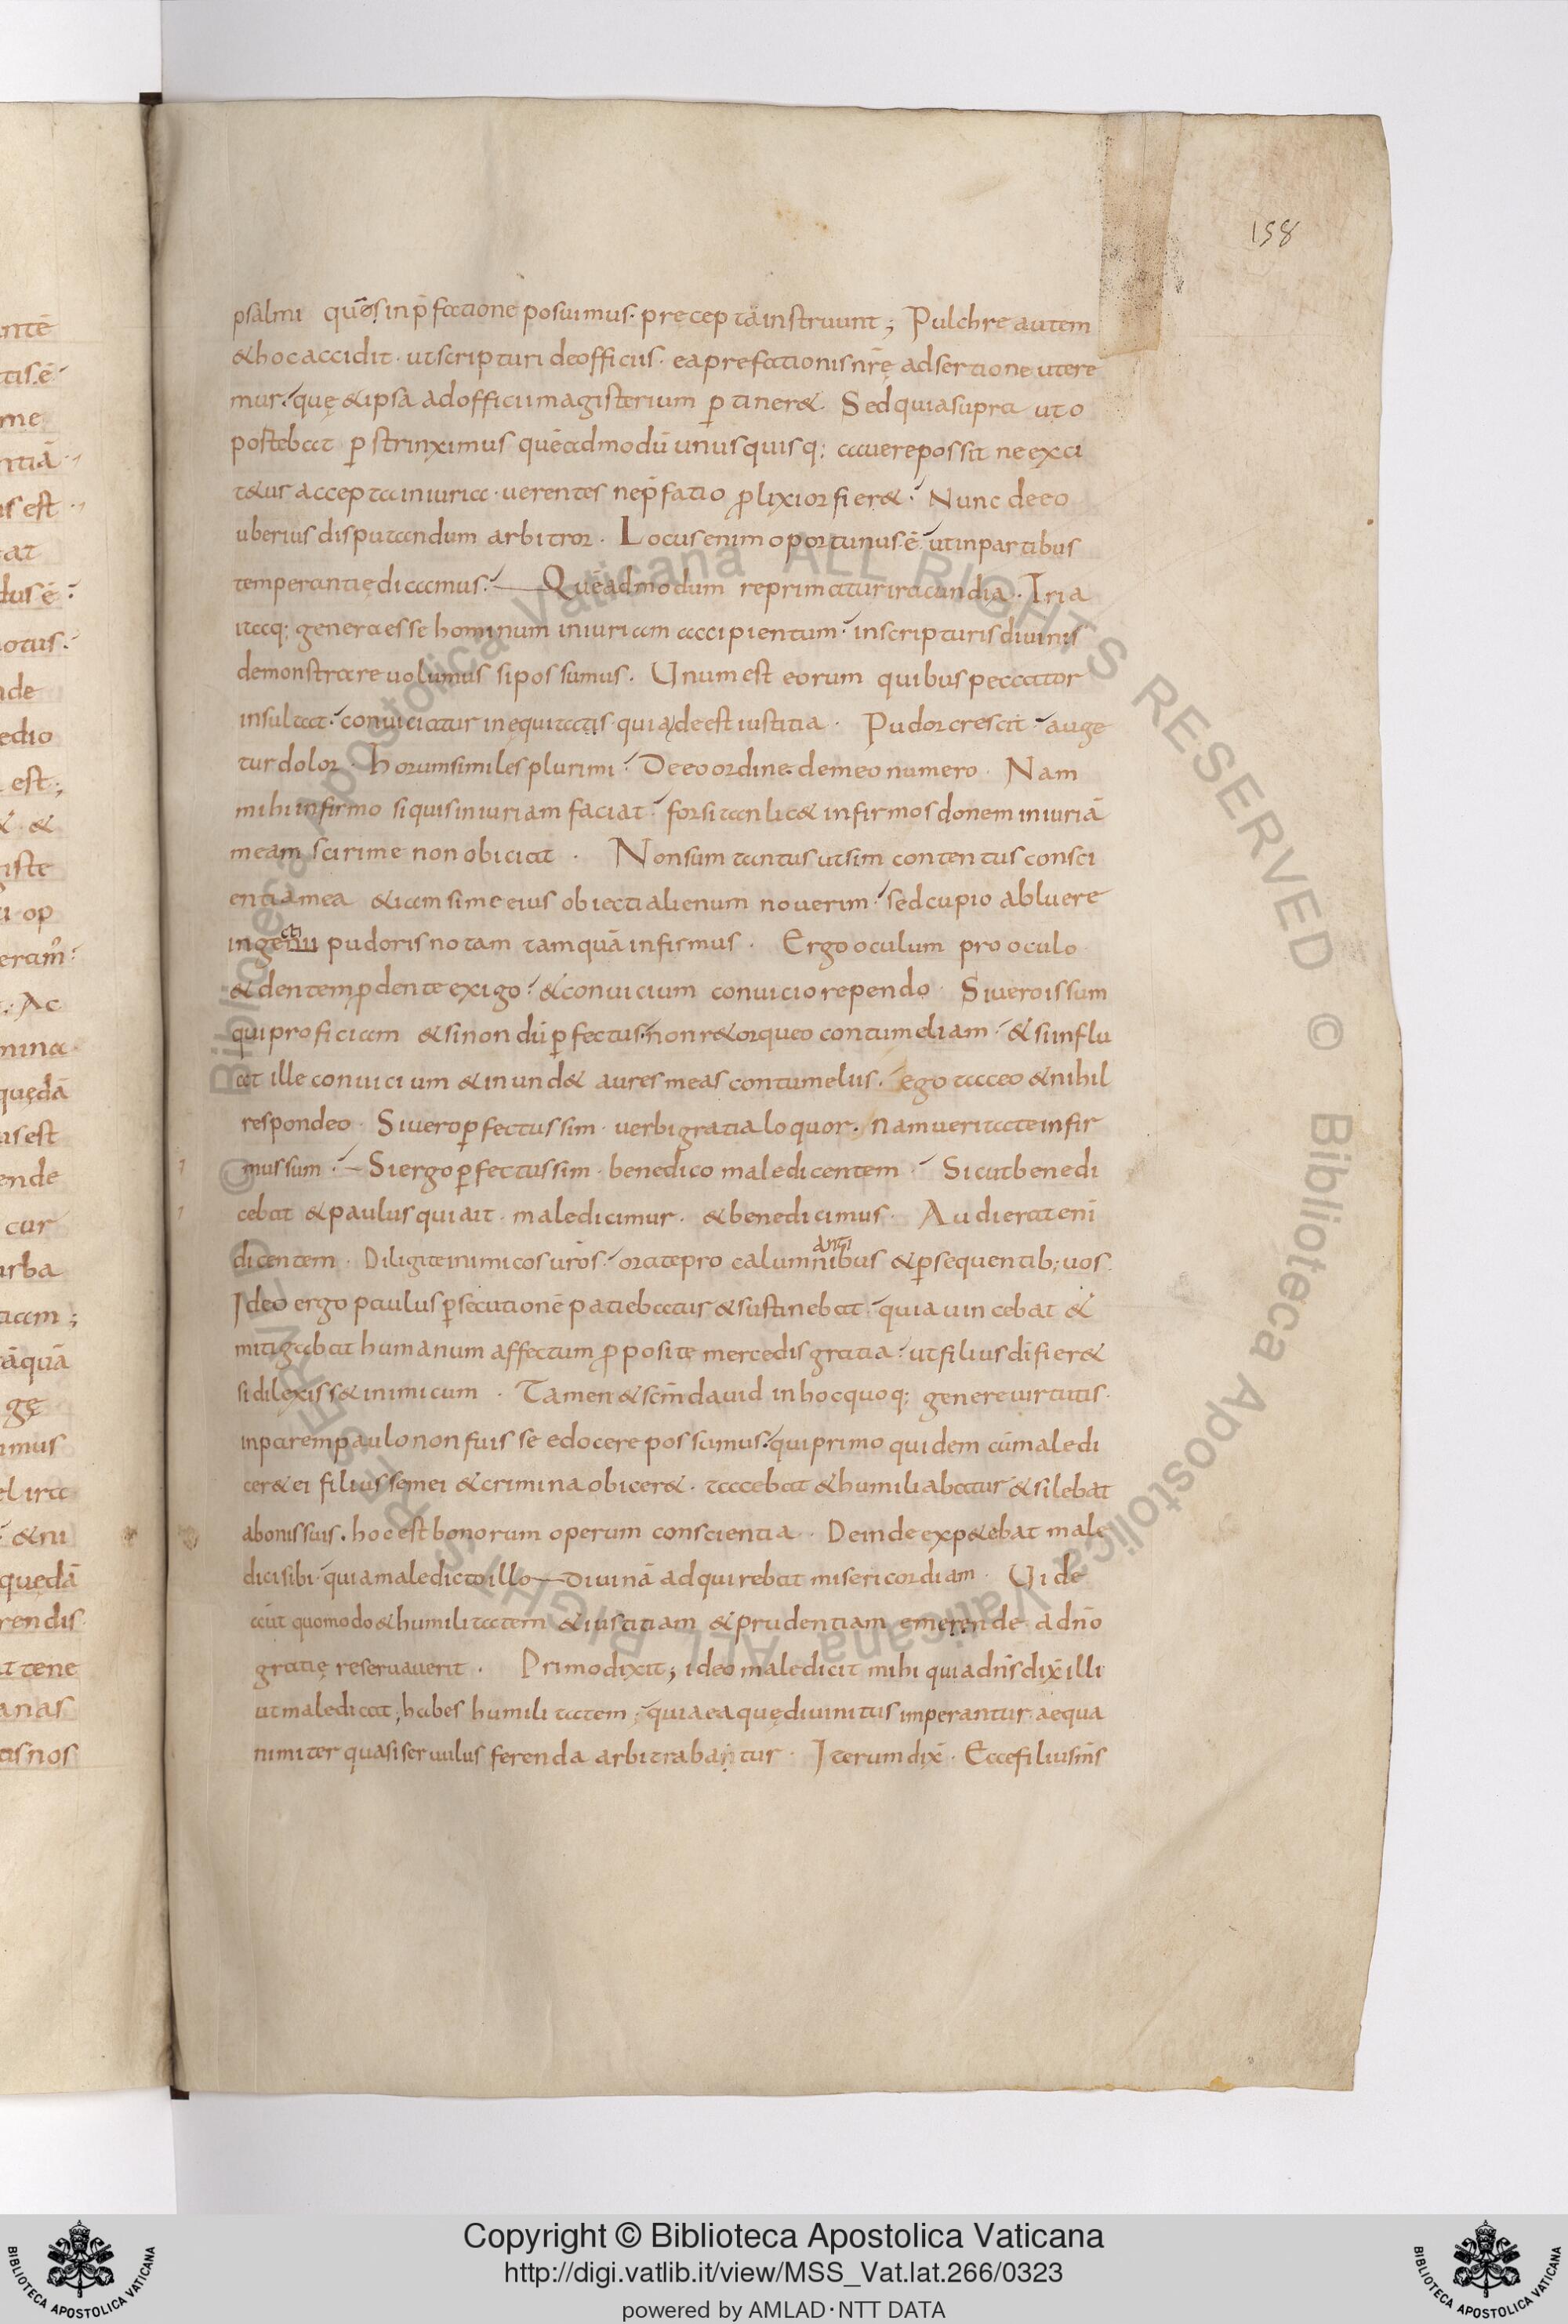 ntē
tis ē
me
ntiā
us est
tat
dus ē
otus
nde
edio
est;
& &
iste
i op
eram̄
Ac
mina
quędā
us est
ende
cur
urba
tiam;
tāquā
gę
imus
el ira
& ni
quędā
rendis
at tene
anas
tis nos
158
psalmi quēs in p̄fatione posuimus. pręcepta instruunt; Pulchre autem
& hoc accidit. ut scripturi de officiis. ea prefationis nr̄ę adsertione utere
mur. quę & ipsa ad officii magisterium ꝑtiner& Sed quia supra ut o
postebat ꝑstrinximus quēadmodū unusquisq; cauere possit ne exci
t&us accepta iniuria. uerentes ne p̄fatio ꝓlixior fier& Nunc de eo
uberius disputandum arbitror. Locus enim oportunus ē ut in partibus
temperantię dicamus. Quēadmodum reprimatur iracundia. Tria
itaq; genera esse hominum iniuriam accipientum. in scripturis diuinis
demonstrare uolumus si possumus. Unum est eorum quibus peccator
insultat. conuiciatur inęquitatis quia deest iustitia. Pudor crescit auge
tur dolor. horum similes plurimi. De eo ordine. de meo numero. Nam
mihi infirmo si quis iniuriam faciat. forsitan lic& infirmos donem iniuriā
meam si crime non obiciat. Non sum tantus ut sim contentus consci
entia mea &iam si me eius obiecti alienum nouerim. sed cupio abluere
ingenii pudoris notam tamquā infirmus. Ergo oculum pro oculo
& dentem ꝓ dente exigo. & conuicium conuicio rependo. Si uero is sum
qui proficiam & si non dū ꝑfectus. non r&orqueo contumeliam. & si influ
at ille conuicium & inund& aures meas contumeliis. ego taceo & nihil
respondeo. Si uero ꝑfectus sim. uerbi gratia loquor. nam ueritate infir
mus sum. Si ergo ꝑfectus sim. benedico maledicentem. Sicut benedi
cebat & paulus qui ait. maledicimur. & benedicimus. Audierat enī
dicentem. Diligite inimicos ur̄os. orate pro calumnibus & ꝑsequentib; uos.
anti
Ideo ergo paulus ꝑsecutionē patiebatur & sustinebat. quia uincebat &
mitigabat humanum affectum ꝓpositę mercedis gratia. ut filius dī fier&
si dilexiss& inimicum. Tamen & sc̄m dauid in hoc quoq; genere uirtutis.
inparem paulo non fuisse edocere possumus. qui primo quidem cū maledi
cer& ei filius semei & crimina obicer&. tacebat & humiliabatur & silebat
a bonis suis. hoc est bonorum operum conscientia. Deinde exp&ebat male
dici sibi. quia maledicto illo diuinā adquirebat misericordiam. Uide
aūt quomodo & humilitatem & iustitiam & prudentiam emerendę a dn̄o
gratię reseruauerit. Primo dixit; ideo maledicit mihi quia dn̄s dix̄ illi
ut maledicat; habes humilitatem. quia ea quę diuinitus imperantur aequa
nimiter quasi seruulus ferenda arbitrabantur. Iterum dix̄. Ecce filius m̄s
Copyright © Biblioteca Apostolica Vaticana
http://digi.vatlib.it/view/MSS_Vat.lat.266/0323
powered by AMLAD·NTT DATA